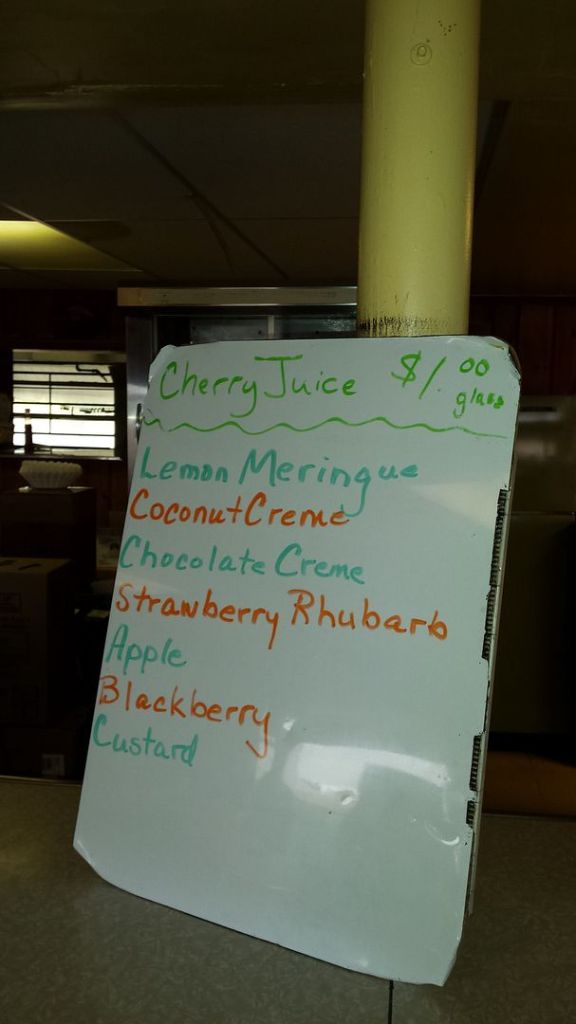 Cherry Juice $1.00 glass
Lemon Meringue
Coconut Creme
Chocolate Creme
Strawberry Rhubarb
Apple
Blackberry
Custard